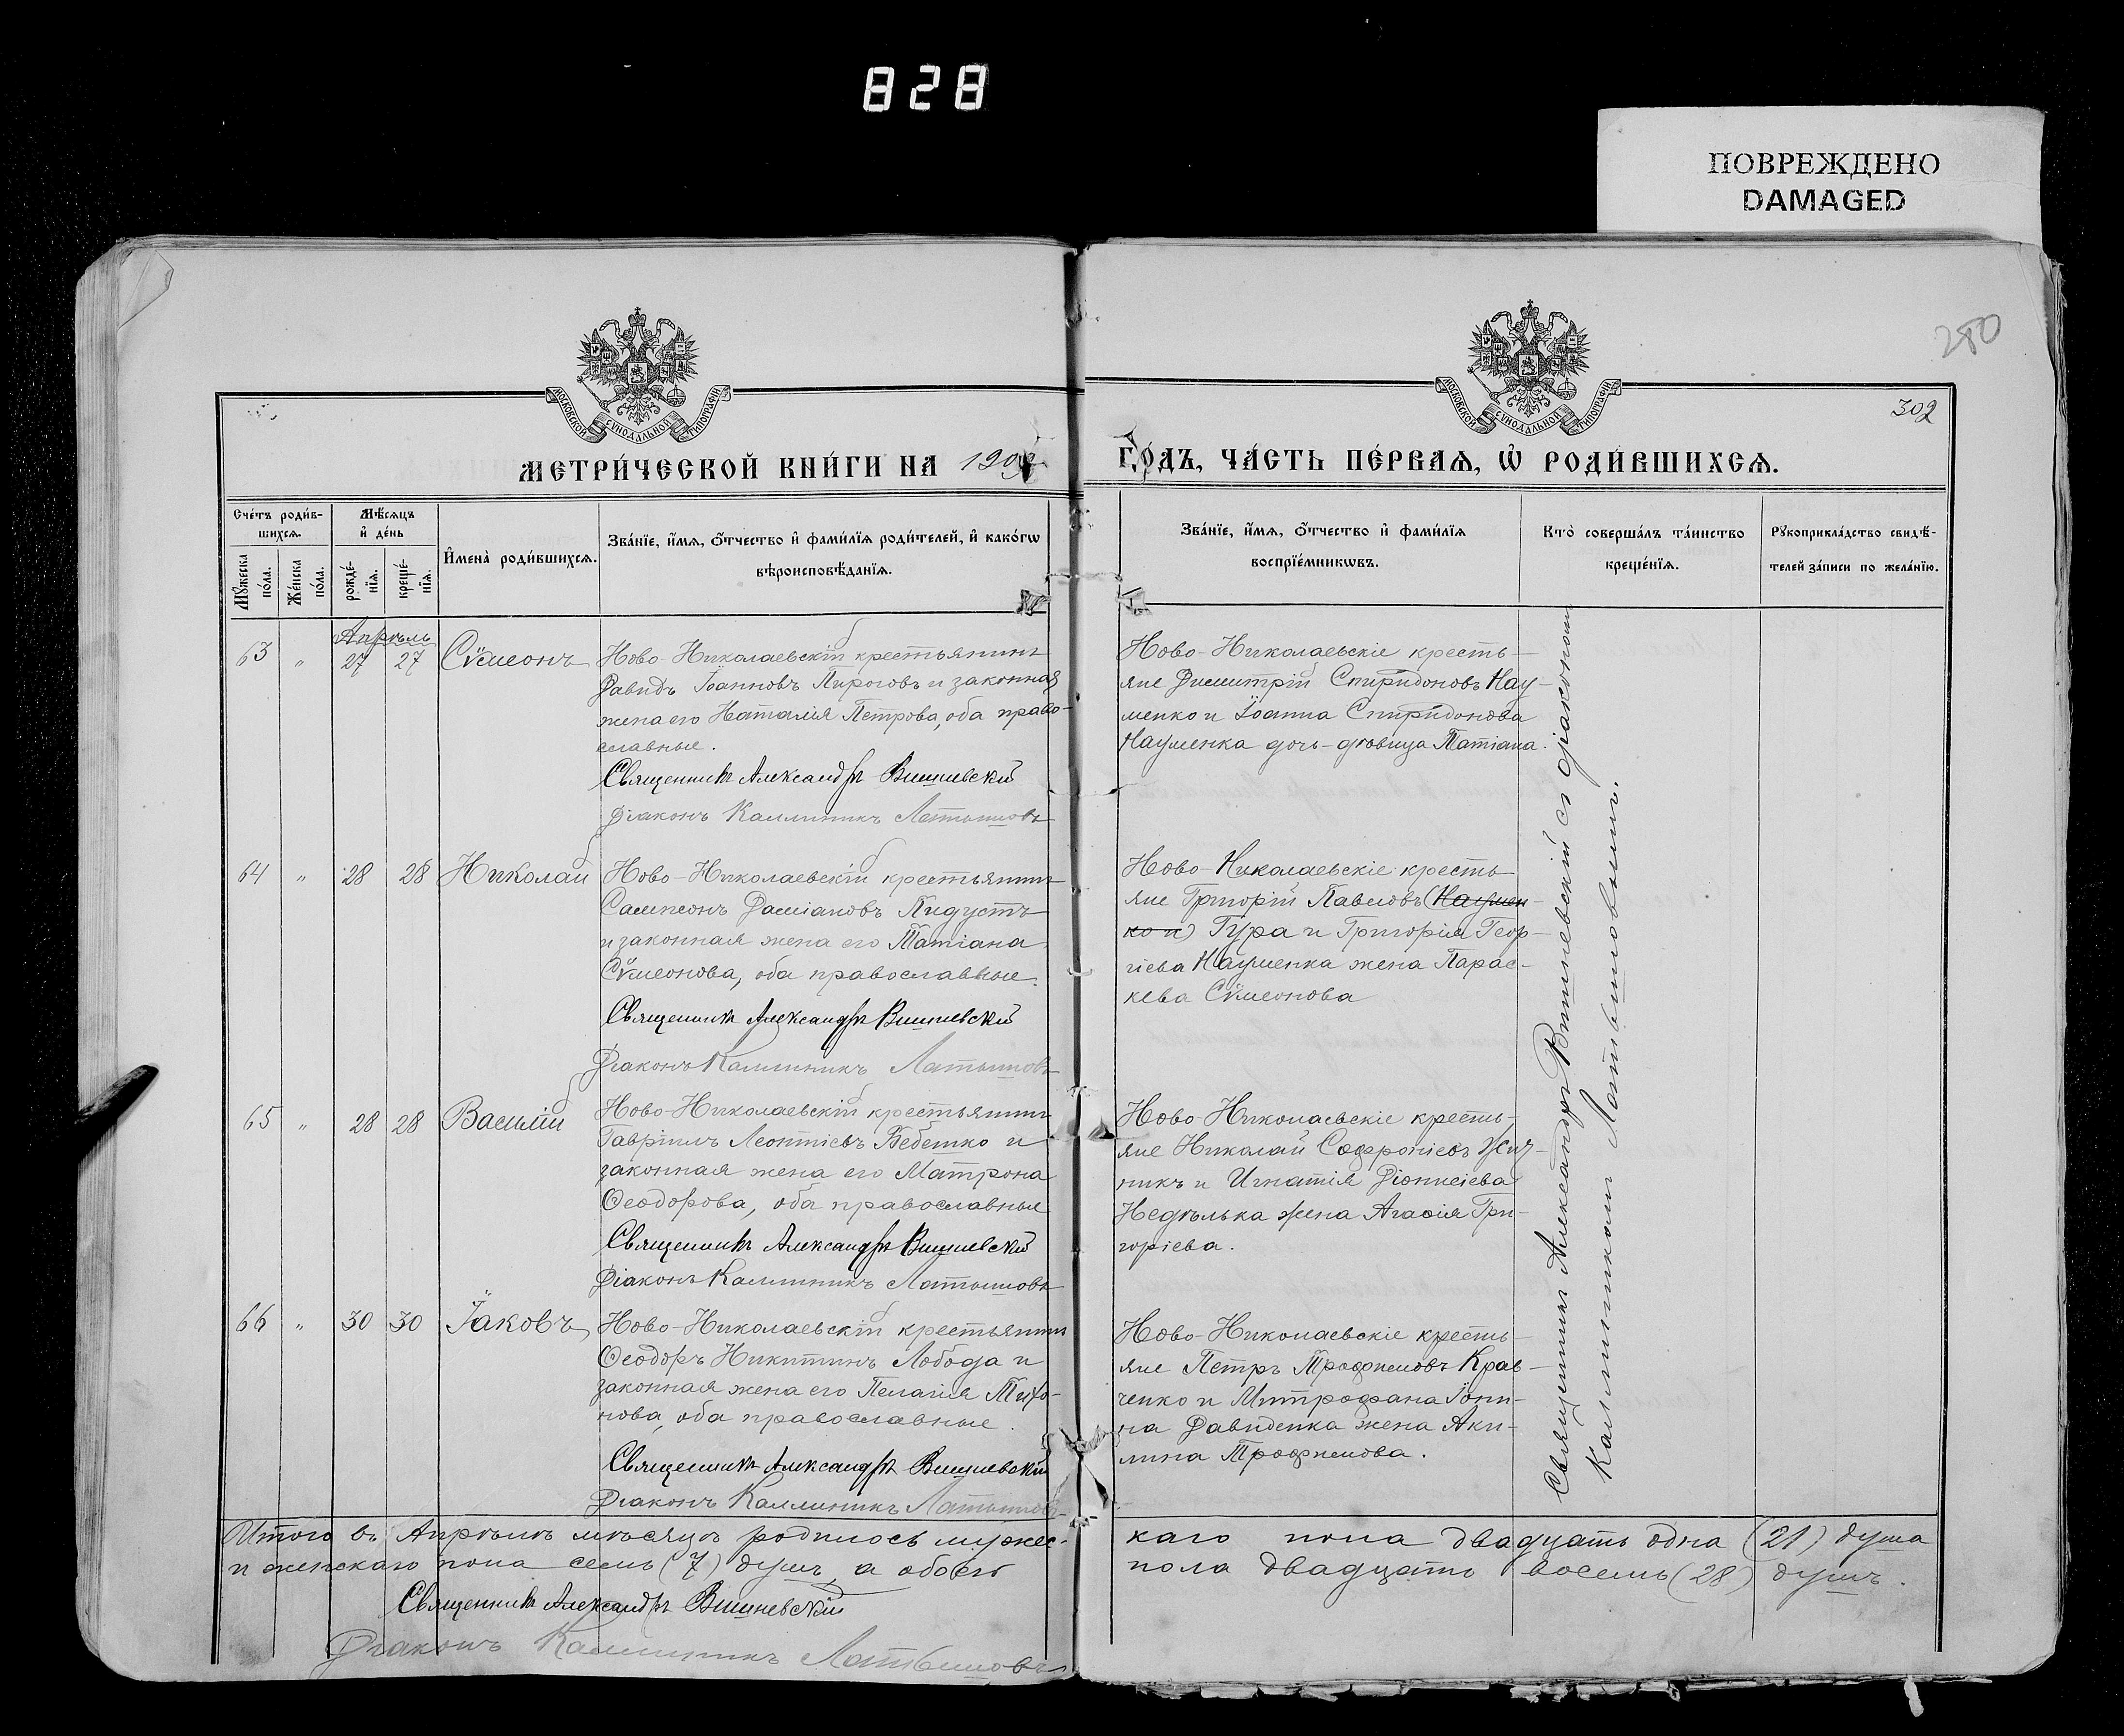 828
ПОВРЕЖДЕНО
DAMAGED
280
302
МОСКОВСКОЙ СѴНОДАЛЬНОЙ ТИПОГРАФІИ
МОСКОВСКОЙ СѴНОДАЛЬНОЙ ТИПОГРАФІИ
МЕТРИ́ЧЕСКОЙ КНИ́ГИ НА 190
ГО́ДЪ, ЧА́СТЬ ПЕ́РВАѦ, Ѡ҆ РОДИ́ВШИХСѦ.
Сче́тъ роди́в-
шихсѧ.
Мѣ́сѧцъ
и҆ де́нь
Мꙋ́жеска по́ла.
Же́нска по́ла.
рожде́-
нїѧ.
креще́-
нїѧ.
И҆мена̀ роди́вшихсѧ.
Зва́нїе, и҆́мѧ, ѻ҆́тчество и҆ фами́лїѧ роди́телей, и҆ како́гѡ
вѣроисповѣ́данїѧ.
Зва́нїе, и҆́мѧ, ѻ҆́тчество и҆ фами́лїѧ
воспрїе́мникѡвъ.
Кто̀ соверша́лъ та́инство
креще́нїѧ.
Рꙋкоприкла́дство свидѣ́-
телей за́писи по жела́нїю.
Апрѣль
63 " 27 27 Сѷмеонъ
Ново-Николаевскій крестьянинъ
Давидъ Іоанновъ Пироговъ и законная
жена его Наталія Петрова, оба право-
славные.
Священникъ Александръ Вишневскій
Діаконъ Каллиникъ Латышовъ
Ново-Николаевскіе кресть-
яне Димитрій Спиридоновъ Нау-
менко и Іоанна Спиридонова
Науменка дочь-дѣвица Татіана.
64 " 28 28 Николай
Ново-Николаевскій крестьянинъ
Сампсонъ Даміановъ Пидустъ
и законная жена его Татіана
Сѷмеонова, оба православные.
Священникъ Александръ Вишневскій
Діаконъ Каллиникъ Латышовъ
Ново-Николаевскіе кресть
яне Григорій Павловъ (Наумен-
ко и) Гура и Григорія Геор-
гіева Науменка жена Парас-
кева Сѷмеонова
65 " 28 28 Василій
Ново-Николаевскій крестьянинъ
Гавріилъ Леонтіевъ Бебешко и
законная жена его Матрона
Ѳеодорова, оба православные
Священникъ Александръ Вишневскій
Діаконъ Каллиникъ Латышовъ
Ново-Николаевскіе кресть-
яне Николай Софроніевъ
никъ и Игнатія Діонисіева
Недѣлька жена Агаѳія Гри-
горіева.
66 " 30 30 Іаковъ
Ново-Николаевскій крестьянинъ
Ѳеодоръ Никитинъ Лобода и
законная жена его Пелагія Тихо-
нова, оба православные.
Священникъ Александръ Вишневскій
Діаконъ Каллиникъ Латышовъ
Ново-Николаевскіе кресть-
яне Петръ Трофимовъ Крав-
ченко и Митрофана Іони-
на Давиденка жена Аки-
лина Трофимова.
Священникъ Александръ Вишневскій съ діакономъ
Каллиникомъ Латышовымъ.
Итого въ Апрѣлѣ мѣсяцѣ родилось мужес-
каго пола двадцать одна (21) душа
и женскаго пола семь (7) душъ, а обоего
пола двадцать восемь (28) душъ.
Священникъ Александръ Вишневскій
Діаконъ Каллиникъ Латышовъ